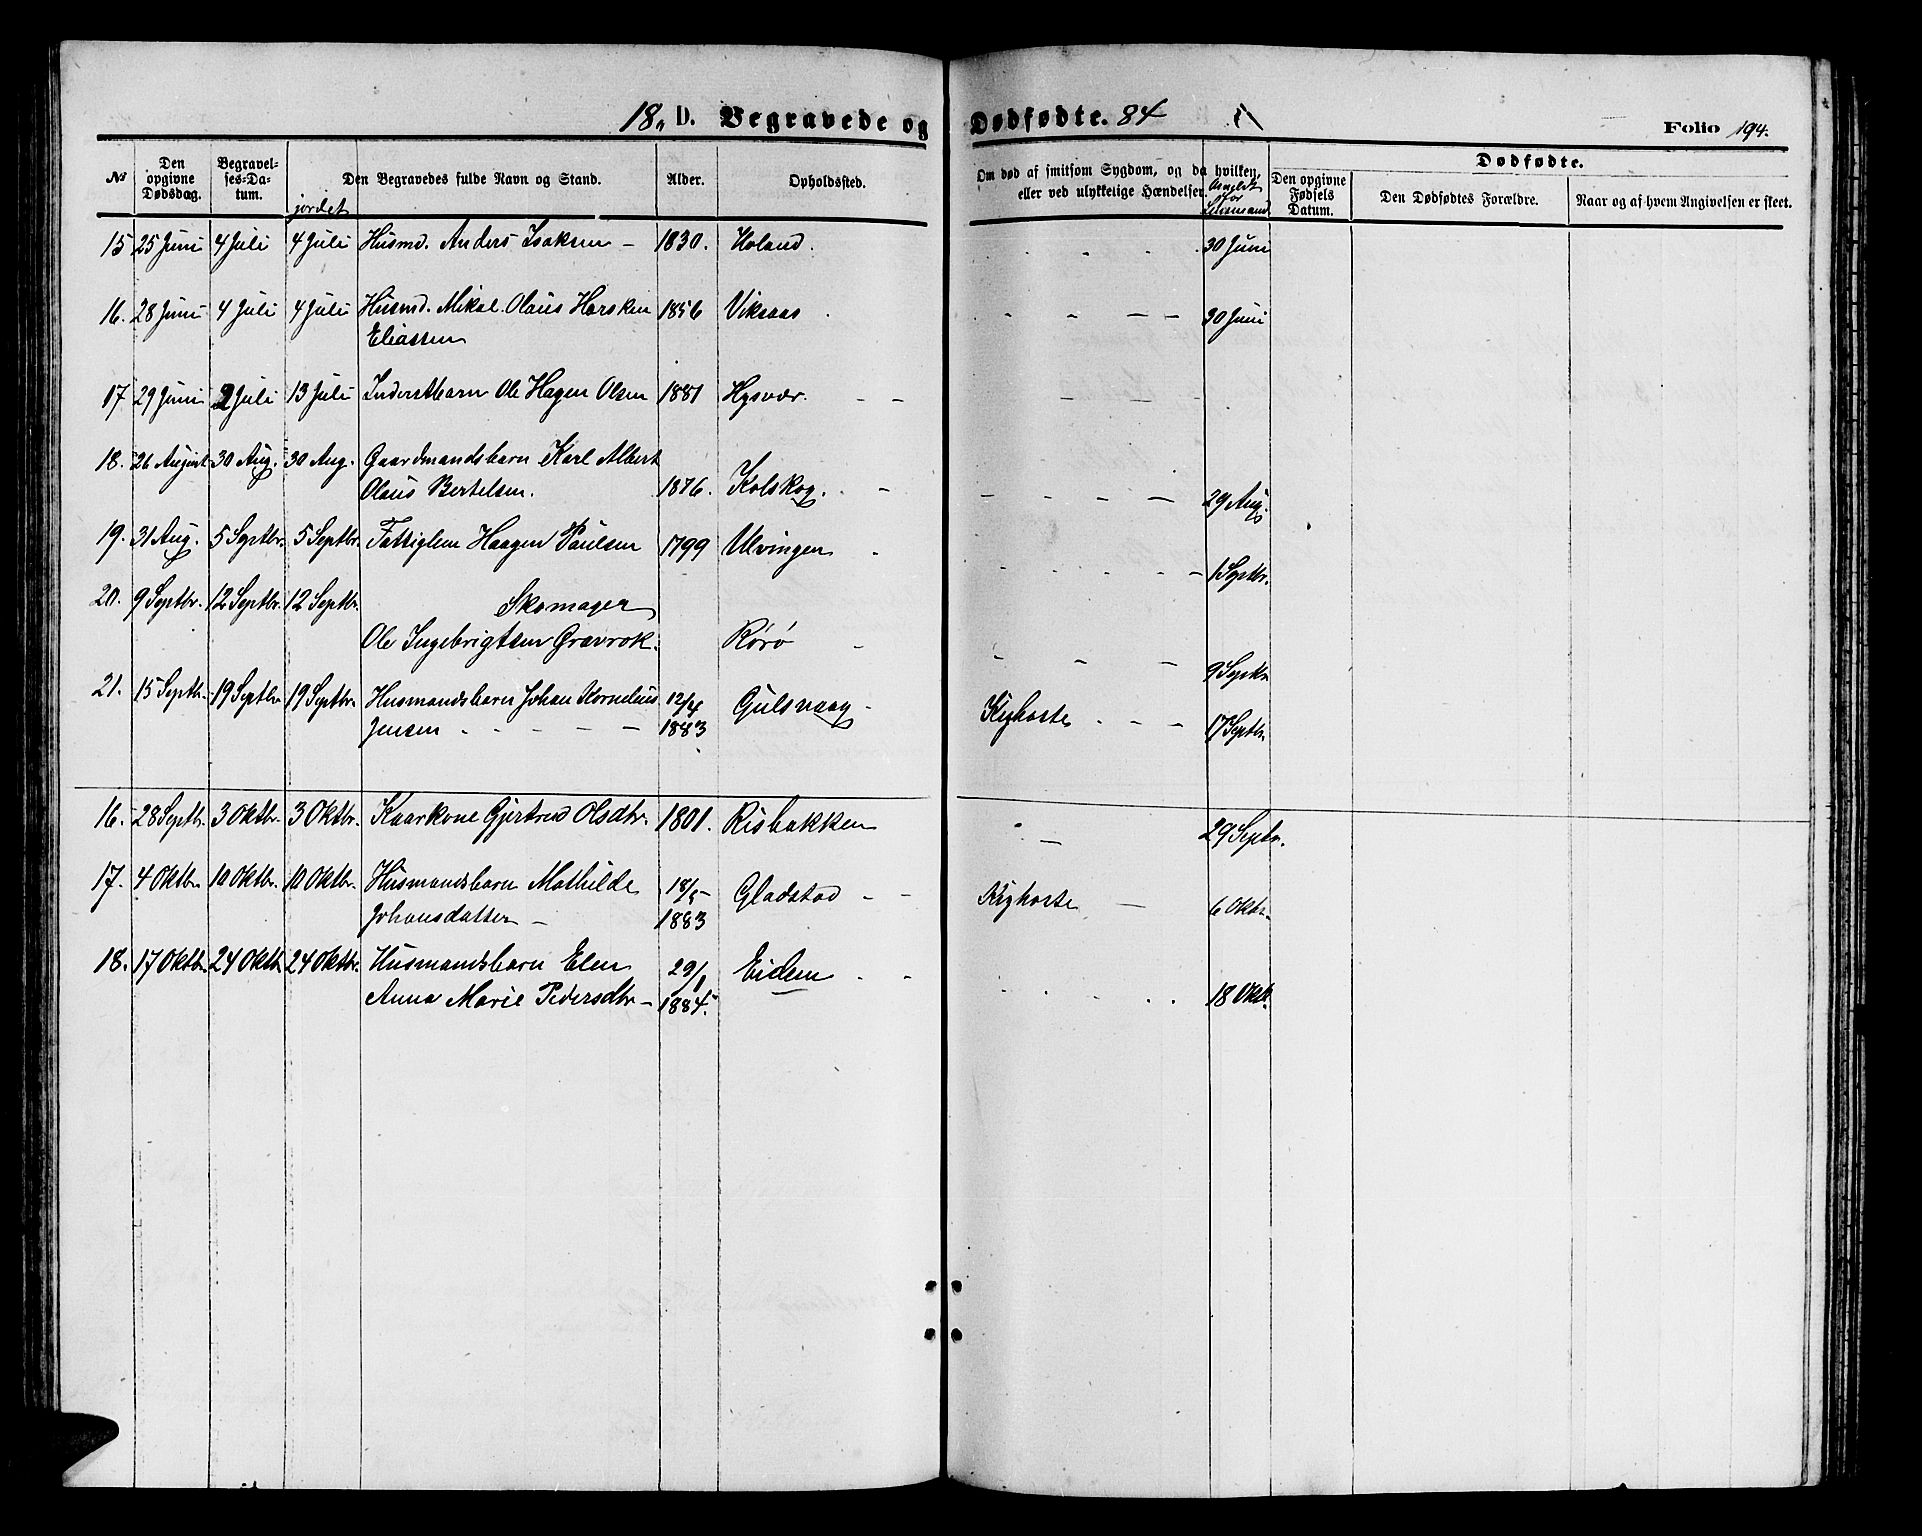 18, D. Begravede og Dødfødte. 84
Folio 194.
№ Den opgivne Dødsdag. Begravelses-Datum. jordet Den Begravedes fulde Navn og Stand. Alder. Opholdssted. Om død af smitsom Sygdom, og da hvilken, eller ved ulykkelige Hændelser. Anmeldt for Lensmand Dødfødte. Den opgivne Fødsels Datum. Den Dødfødtes Forældre. Naar og af hvem Angivelsen er skeet.
15 25 Juni 4 Juli 4 Juli Husmd. Anders Isaksen - 1830. Holand. 30 Juni
16. 28 Juni 4 Juli 4 Juli Husmd. Mikal Olaus Horsken 1856 Viksaas 30 Juni
Eliassen
17 29 Juni 2 Juli 13 Juli Inderstbarn Ole Hagen Olsen 1881 Hysvær. - -
18. 26 August 30 Aug. 30 Aug. Gaardmandsbarn Karl Albert
Olaus Bertelsen. 1876. Kolskog. - 29 Aug.
19. 31 Aug. 5 Septbr. 5 Septbr. Fattiglem Haagen Paulsen 1799 Ulvingen 1 Septbr.
20. 9 Septbr. 12 Septbr. 12 Septbr. Skomager
Ole Ingebrigtsen Gravrok. Rørø 9 Septbr
21. 15 Septbr. 19 Septbr 19 Septbr. Husmandsbarn Johan Kornelius 12/4 Gulsvaag - Kighoste 17 Septbr.
Jensen - - - 1883
16. 28 Septbr. 3 Oktbr. 3 Oktbr. Kaarkone Gjertrud Olsdtr. 1801. Risbakken 29 Septbr.
17. 4 Oktbr 10 Oktbr. 10 Oktbr. Husmandsbarn Mathilde 18/5 Gladstad - - Kighoste - 6 Oktbr.
Johansdatter - 1883
18. 17 Oktbr. 24 Oktb 24 Oktbr. Husmandsbarn Elen 29/1 Eidem
Anna Marie Pedersdtr - 1884. 18 Oktb.